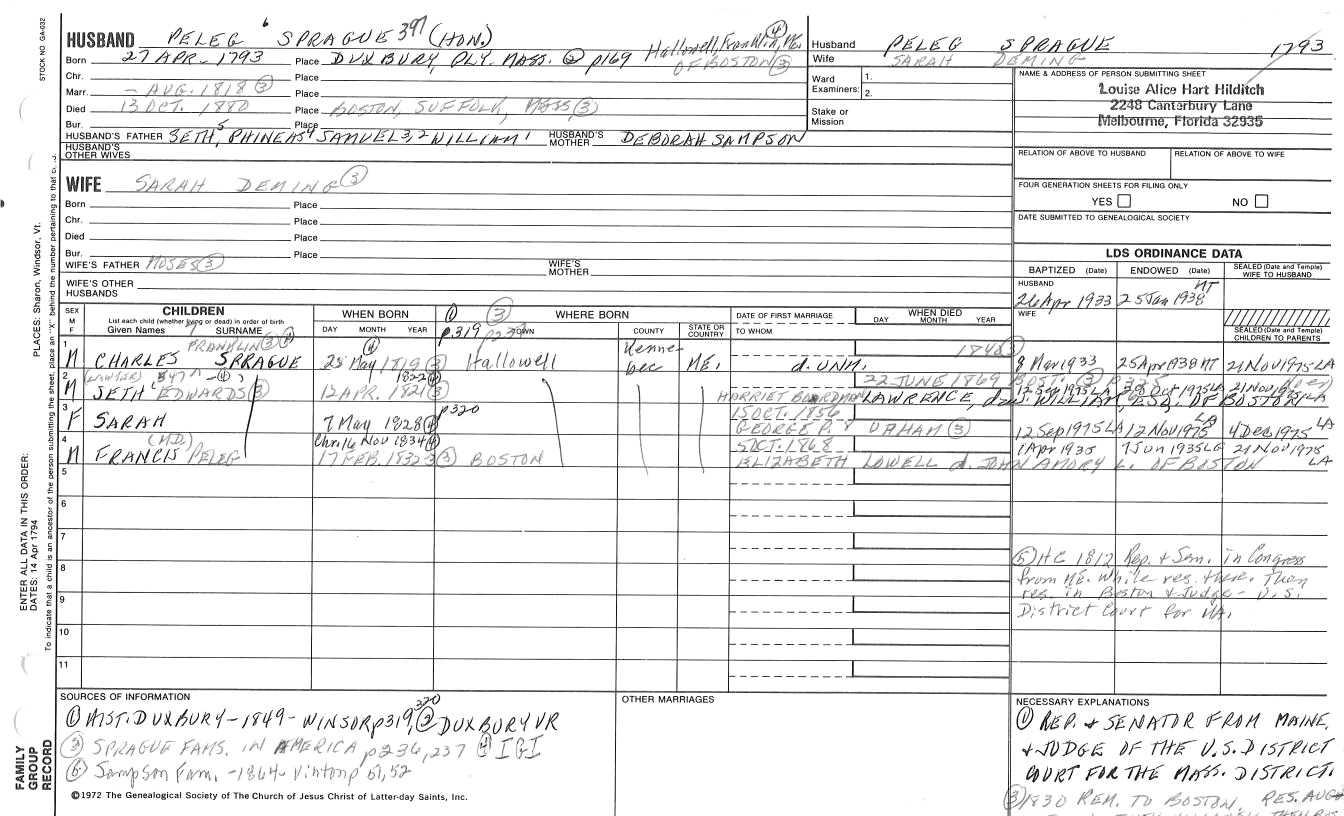 STOCK NO. GA-032
HUSBAND PELEG 6 SPRAGUE 397 (HON.)
Born 27 APR. 1793 Place DUXBURY, PLY. MASS. ② p169 Hallowell, Franklin, ME. ④ OF BOSTON ③
Chr. Place
Marr. - AUG. 1818 ③ Place
Died 13 OCT. 1880 Place BOSTON, SUFFOLK, MASS ③
Bur. Place
HUSBAND'S FATHER SETH 5, PHINEAS 4 SAMUEL 3, 2 WILLIAM 1 HUSBAND'S MOTHER DEBORAH SAMPSON
HUSBAND'S OTHER WIVES
WIFE SARAH DEMING ③
Born Place
Chr. Place
Died Place
Bur. Place
WIFE'S FATHER MOSES ③ WIFE'S MOTHER
WIFE'S OTHER HUSBANDS
Husband PELEG SPRAGUE 1793
Wife SARAH DEMING
Ward Examiners: 1. 2.
Stake or Mission
NAME & ADDRESS OF PERSON SUBMITTING SHEET
Louise Alice Hart Hilditch
2248 Canterbury Lane
Melbourne, Florida 32935
RELATION OF ABOVE TO HUSBAND RELATION OF ABOVE TO WIFE
FOUR GENERATION SHEETS FOR FILING ONLY
YES NO
DATE SUBMITTED TO GENEALOGICAL SOCIETY
LDS ORDINANCE DATA
BAPTIZED (Date) ENDOWED (Date) SEALED (Date and Temple) WIFE TO HUSBAND
HUSBAND
26 Apr 1933 25 Jan 1938 AT
WIFE
SEALED (Date and Temple) CHILDREN TO PARENTS
SEX M F
CHILDREN
List each child (whether living or dead) in order of birth
Given Names SURNAME
WHEN BORN
DAY MONTH YEAR
① ③
p319 p237
WHERE BORN
TOWN COUNTY STATE OR COUNTRY
DATE OF FIRST MARRIAGE
TO WHOM
WHEN DIED
DAY MONTH YEAR
1 M CHARLES FRANKLIN ③ ④ SPRAGUE 25 May 1819 ③ ④ Hallowell Kennebec ME. d. UNM. 1840 ③ 8 Mar 1933 25 Apr 1938 AT 21 Nov 1975 LA
2 M (LAWYER) SETH EDWARDS ③ 12 APR. 1821 ③ 1822 ④ 22 JUNE 1869 BOST. ③
HARRIET BOARDMAN LAWRENCE, dau. WILLIAM, ESQ. OF BOSTON
3 F SARAH 7 May 1828 ④ p320 15 OCT. 1856
GEORGE P. UPHAM ③ 12 Sep 1975 LA 12 Nov 1975 LA 4 Dec 1975 LA
4 M (M.D.) FRANCIS PELEG Chr. 16 Nov 1834 ④ 17 FEB. 1832-3 ③ BOSTON 5 OCT. 1868 1 Apr 1935 7 Jun 1935 LG 21 Nov 1975 LA
ELIZABETH LOWELL d. JOHN AMORY L. OF BOSTON
5
6
7
8
9
10
11
⑤ HC 1812 Rep. & Sen. in Congress
from ME. while res. there. Then
res. in Boston & Judge - U.S.
District Court for MA.
SOURCES OF INFORMATION
① HIST. DUXBURY - 1849 - WINSOR p319, 320 ② DUXBURY VR
③ SPRAGUE FAMS. IN AMERICA p236, 237 ④ IGI
⑥ Sampson Fam. - 1864 - Vinton p 51, 52
©1972 The Genealogical Society of The Church of Jesus Christ of Latter-day Saints, Inc.
OTHER MARRIAGES
NECESSARY EXPLANATIONS
① REP. & SENATOR FROM MAINE,
& JUDGE OF THE U.S. DISTRICT
COURT FOR THE MASS. DISTRICT.
③ 1830 REM. TO BOSTON, RES. AUG
PLACES: Sharon, Windsor, Vt.
ENTER ALL DATA IN THIS ORDER:
DATES: 14 Apr 1794
To indicate that a child is an ancestor of the person submitting the sheet, place an "X" behind the number pertaining to that
FAMILY GROUP RECORD